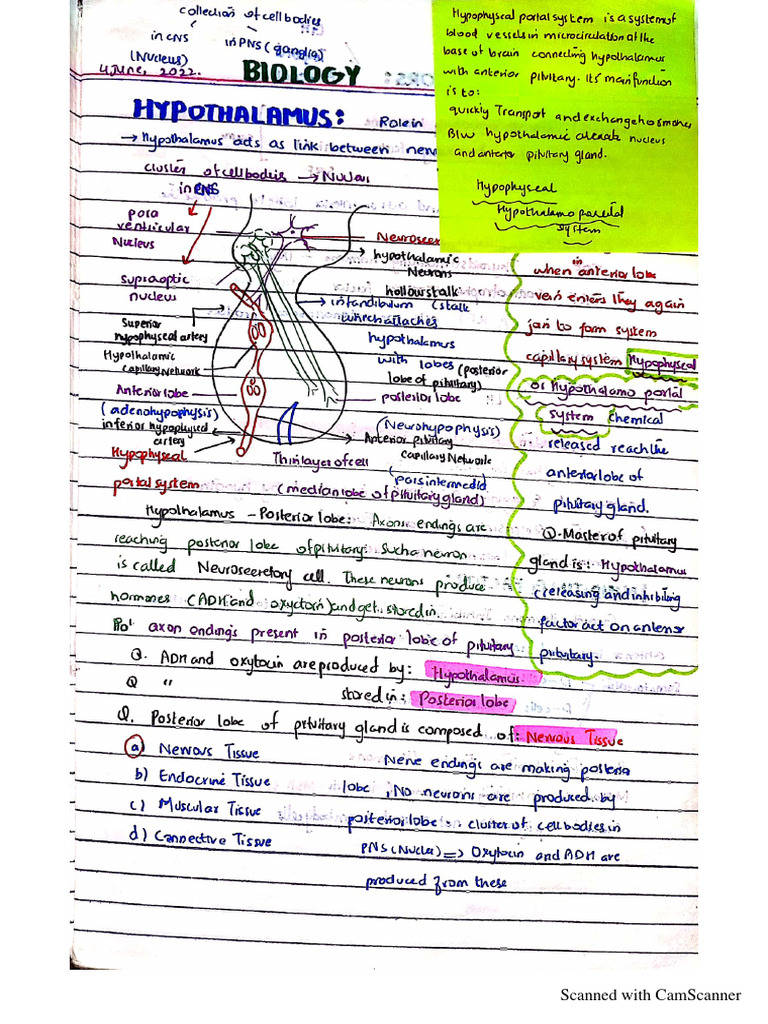 collection of cell bodies
in CNS
in PNS (ganglia)
(Nucleus)
4 June, 2022.
BIOLOGY
Hypophyseal portal system is a system of
blood vessels in microcirculation at the
base of brain connecting hypothalamus
with anterior pitutary. It's main function
is to:
quickly Transport and exchange hormones
B/w hypothalamic arcuate nucleus
and anterior pitutary gland.
Hypophyseal
Hypothalamo
system
HYPOTHALAMUS:
Role in
→ Hypothalamus acts as link between
cluster of cell bodies → Nucleus
in CNS
para
ventricular
Nucleus
Supraoptic
nucleus
Superior
hypophyseal artery
Hypothalamic
capillary Network
Anterior lobe
(adenohypophysis)
inferior hypophyseal
artery
Hypophyseal
portal system
hypothalamic
Neurons
hollow stalk
infandibulum (stalk
which attaches
hypothalamus
with lobes (posterior
lobe of pitutary)
posterior lobe
(Neurohypophysis)
Anterior pitutary
capillary Network
Thin layer of cell
(pars intermedia
(median lobe of pitutary gland)
in
when anterior lobe
vein enters they again
join to form system
capillary system Hypophyseal
or Hypothalamo portal
system chemical
released reach the
anterior lobe of
pitutary gland.
Q. Master of pitutary
gland is: Hypothalamus
(releasing and inhibiting
factor act on anterior
pitutary.
Hypothalamus - Posterior lobe: Axons endings are
reaching posterior lobe of pitutary. Such a neuron
is called Neurosecretory cell. These neurons produce
hormones (ADH and oxyctoin) and get stored in
axon endings present in posterior lobe of pitutary
Q. ADH and oxytocin are produced by: Hypothalamus
Q " stored in: Posterior lobe
Q. Posterior lobe of pitutary gland is composed of: Nervous Tissue
a) Nervous Tissue
b) Endocrine Tissue
c) Muscular Tissue
d) Connective Tissue
Nerve endings are making posteria
lobe, No neurons are produced by
posterior lobe - cluster of cell bodies in
PNS (Nuclei) => Oxytocin and ADH are
produced from these
Scanned with CamScanner